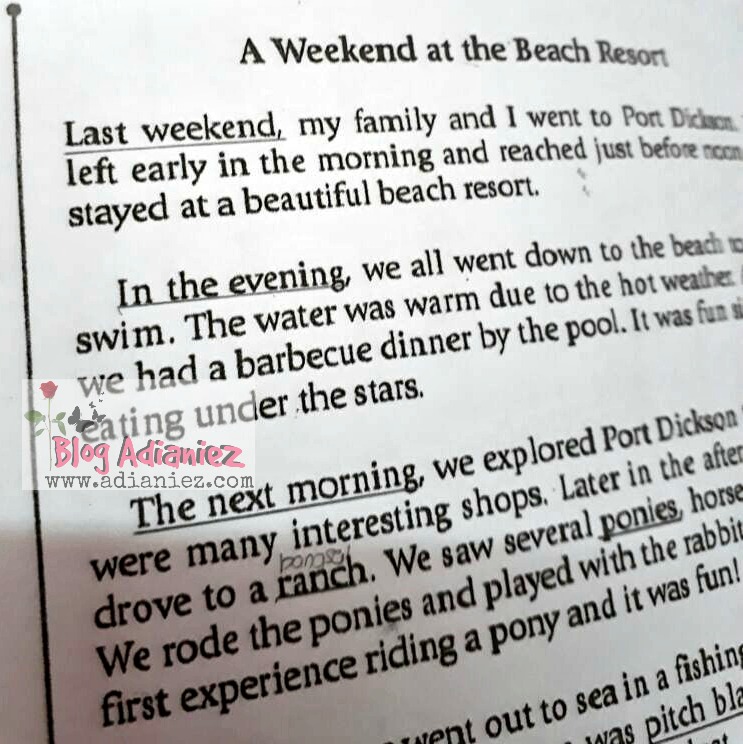 A Weekend at the Beach Resort
Last weekend, my family and I went to Port Dickson.
left early in the morning and reached just before noon
stayed at a beautiful beach resort.
In the evening, we all went down to the beach
swim. The water was warm due to the hot weather.
we had a barbecue dinner by the pool. It was fun
eating under the stars.
Blog Adianiez
www.adianiez.com
The next morning, we explored Port Dickson
were many interesting shops. Later in the after
drove to a ranch. We saw several ponies, horse
We rode the ponies and played with the rabbit
first experience riding a pony and it was fun!
went out to sea in a fishing
was pitch bla